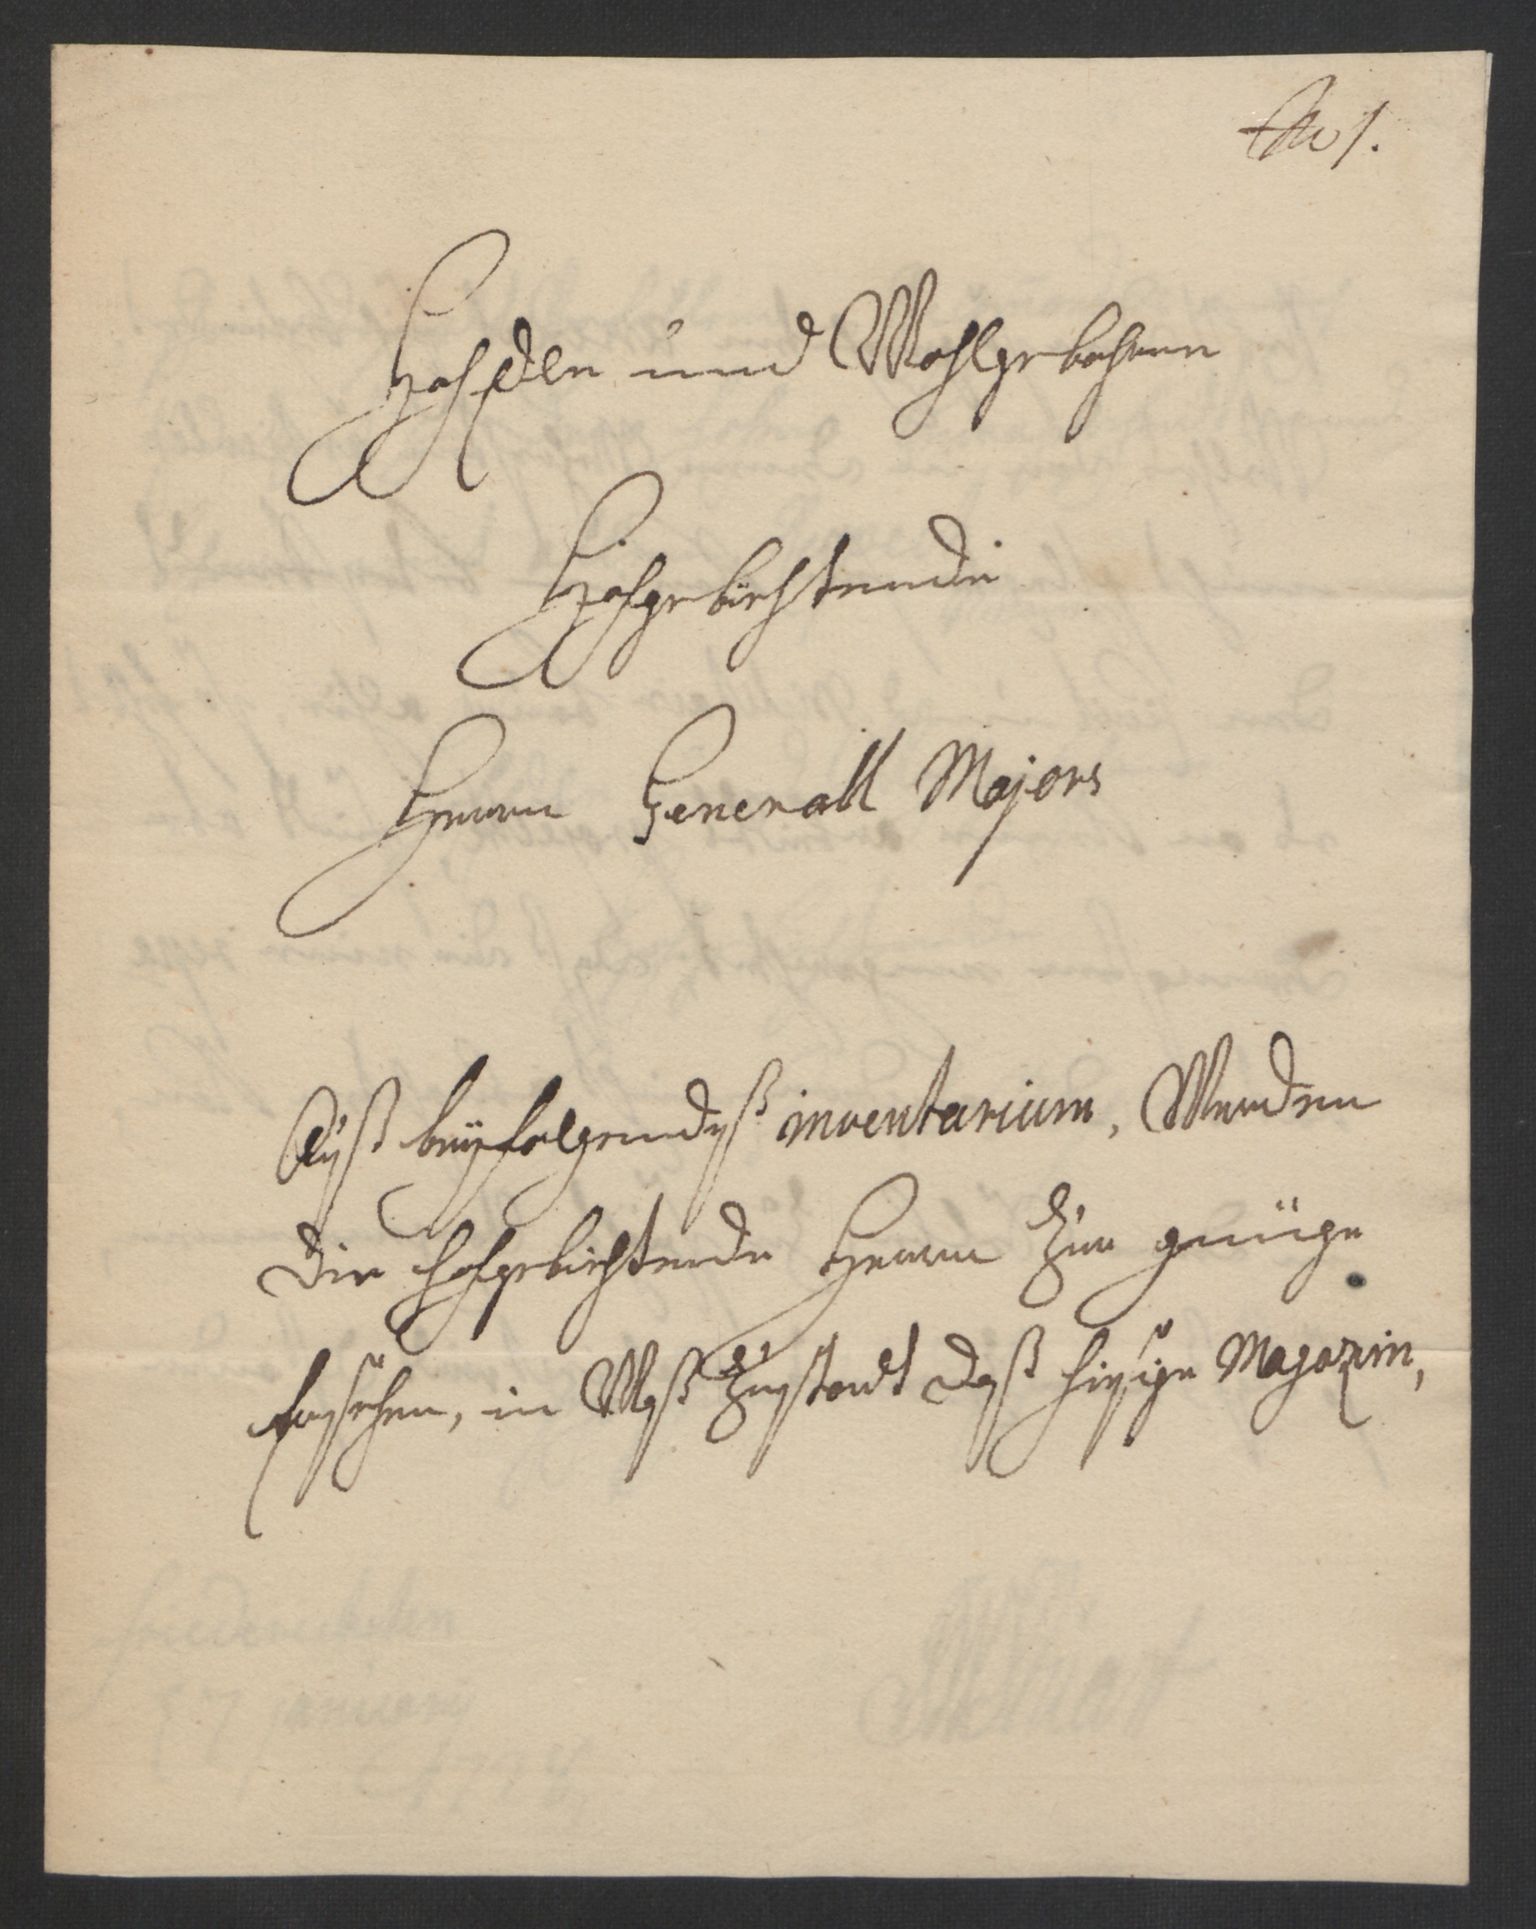 No 1.
HochEdle und Wohlgebohrne
Hochgebiehtende
Herrn Generall Majors
Auß beyfolgendeß inventarium, Werden
die hochgebiehtende Herrn zur genüge
ersehen, in Waß Zustandt daß hiesige Magazin,